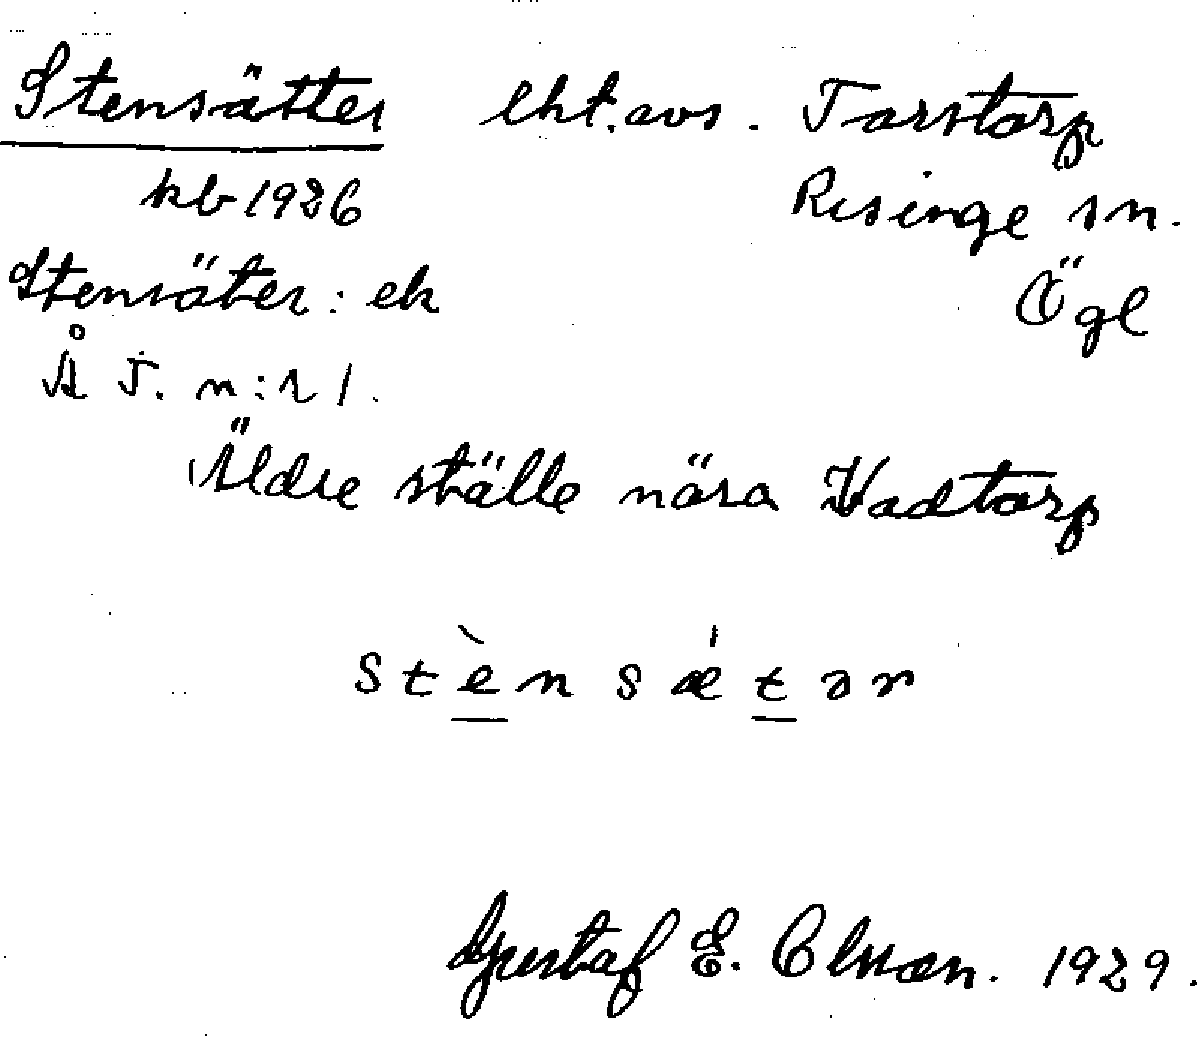 Stensätter lht. avs. Tarstorp
kb 1926 Risinge sn.
Stensäter: ek Ögl
Å T. n:r 1.
Äldre ställe nära Vadtorp
stè̀nsǽtər
Gustaf E. Olsson. 1929.